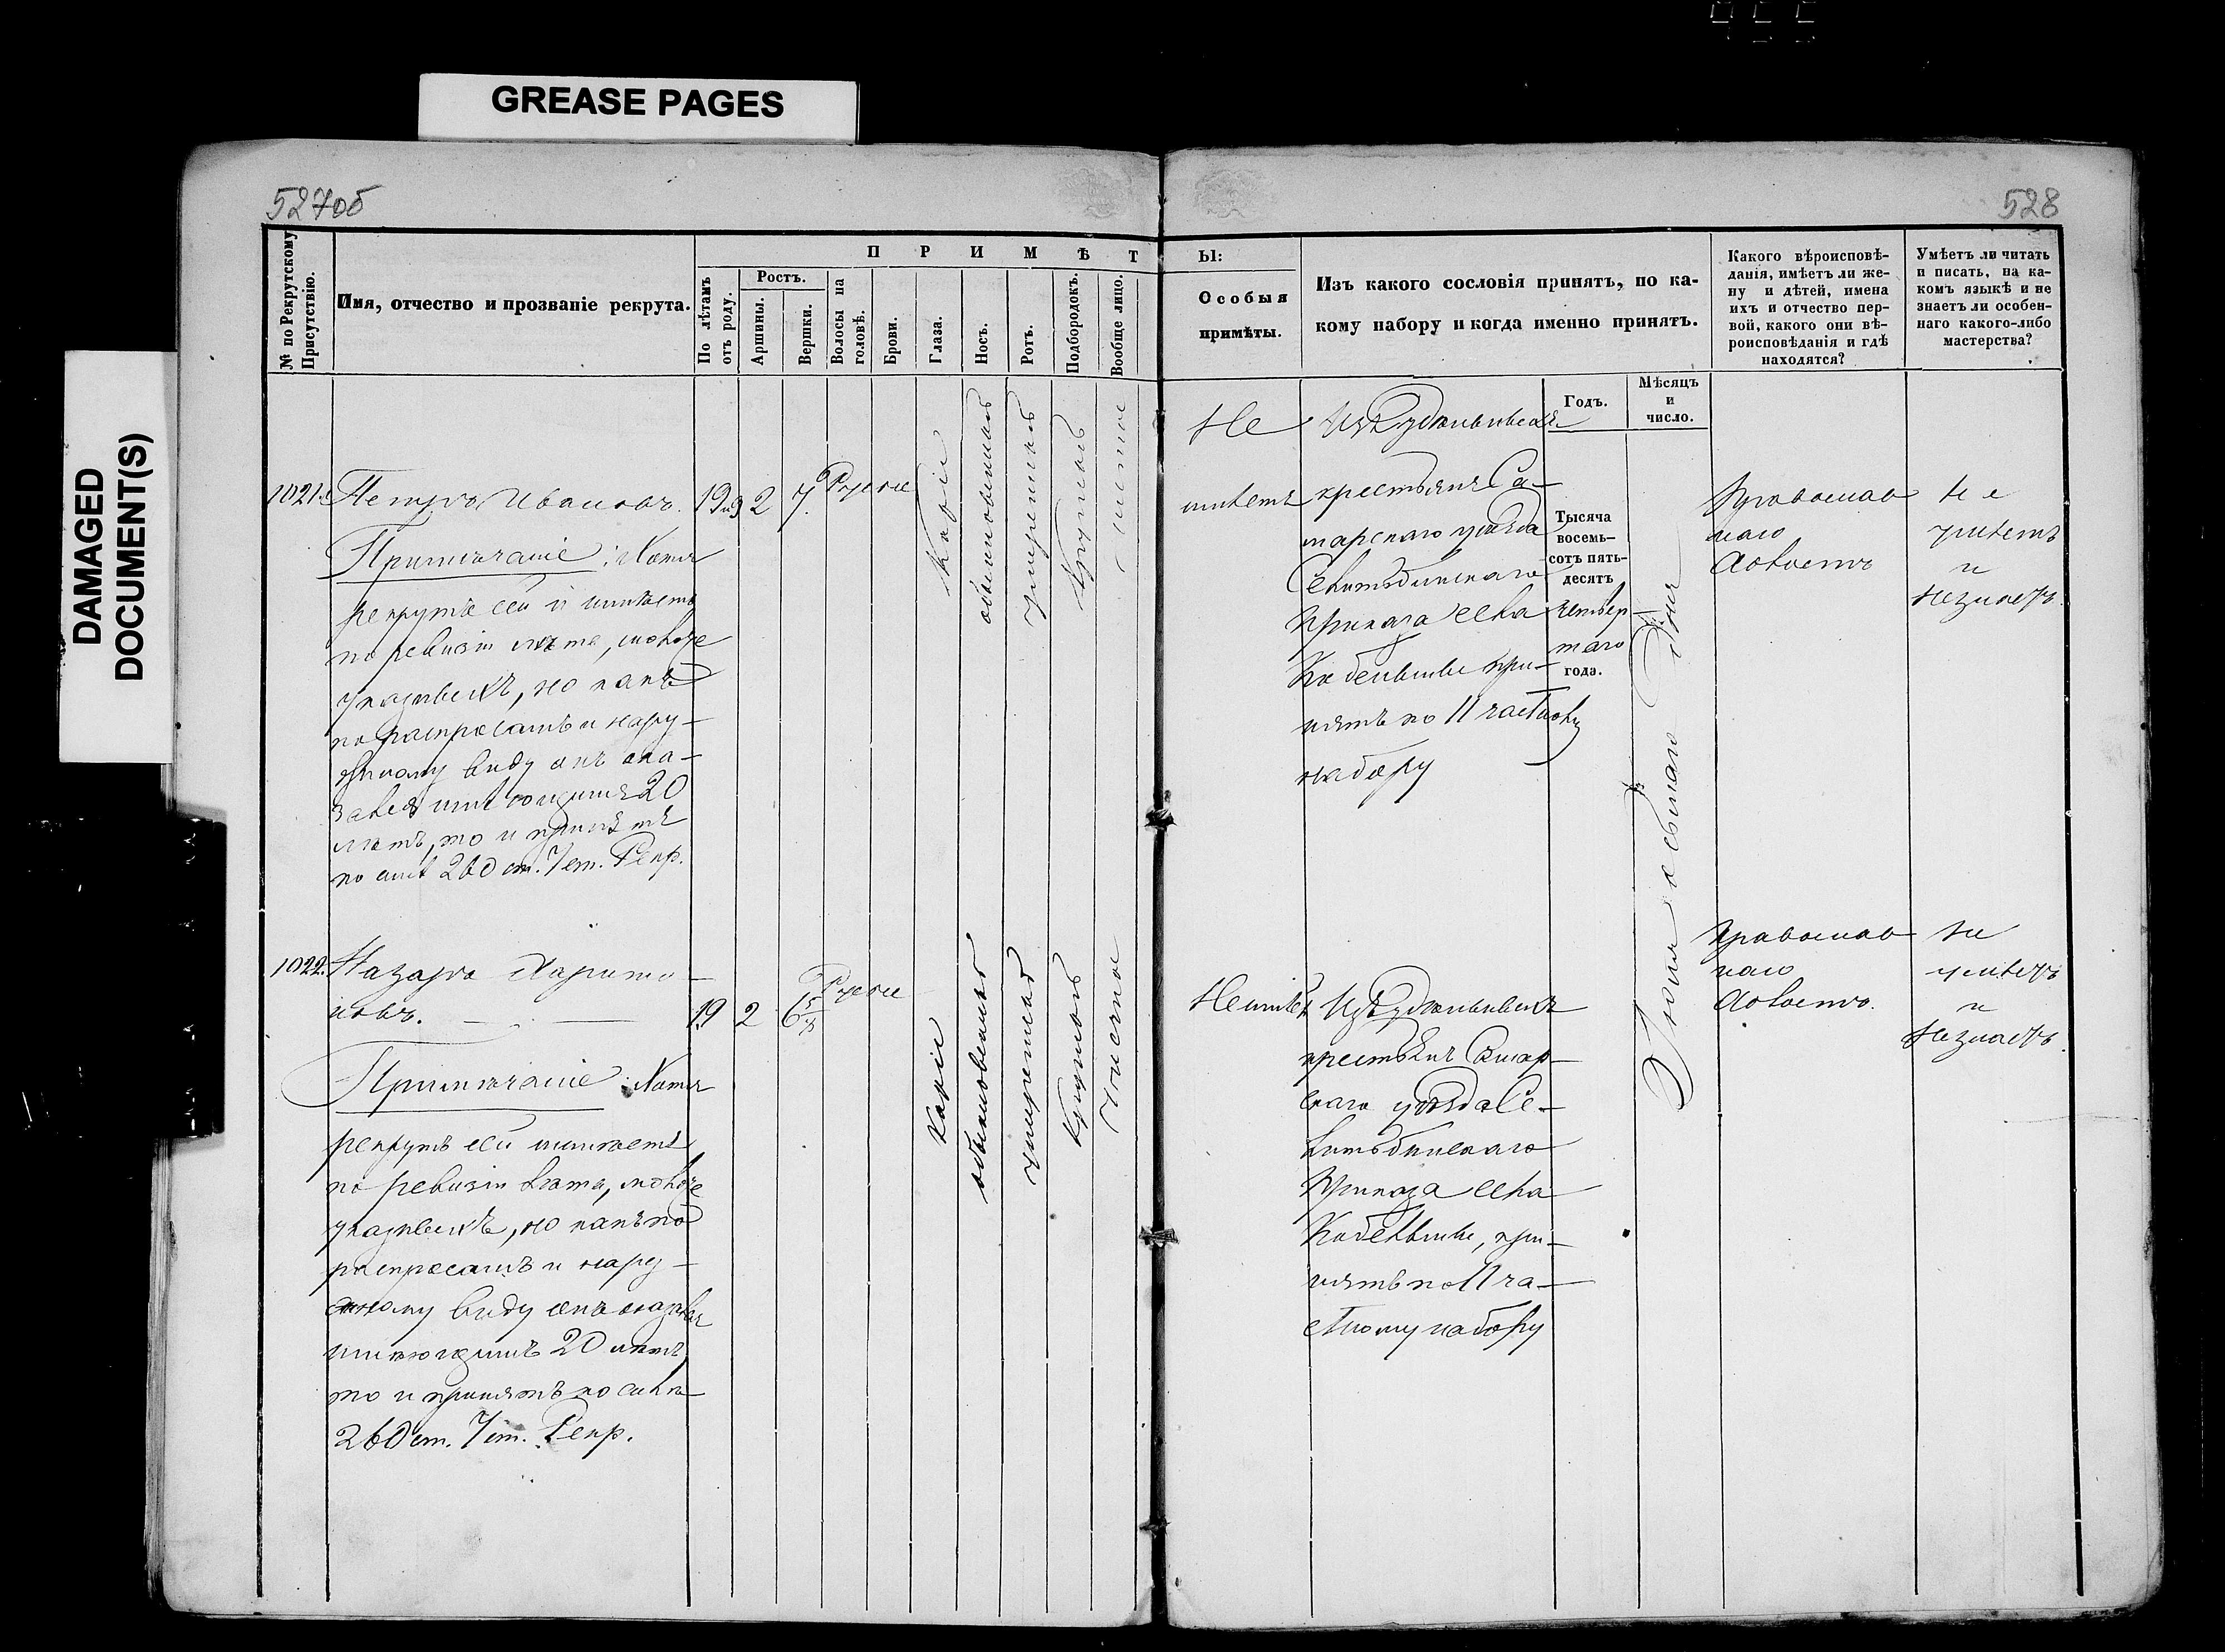 GREASE PAGES
DAMAGED
DOCUMENT(S)
527об
528
№ по Рекрутскому
Присутствію.
Имя, отчество и прозваніе рекрута.
ПРИМѢТ
По лѣтамъ
отъ роду.
Ростъ.
Аршины.
Вершки.
Волосы на
головѣ.
Брови.
Глаза.
Носъ.
Ротъ.
Подбородокъ.
Вообще лицо.
Ы:
Особыя
примѣты.
Изъ какого сословія принятъ, по ка-
кому набору и когда именно принятъ.
Годъ.
Мѣсяцъ
и
число.
Какого вѣроисповѣ-
данія, имѣетъ ли же-
ну и дѣтей, имена
ихъ и отчество пер-
вой, какого они вѣ-
роисповѣданія и гдѣ
находятся?
Умѣетъ ли читать
и писать, на ка-
комъ языкѣ и не
знаетъ ли особен-
наго какого-либо
мастерства?
1021. Петръ Ивановъ.
Примѣчаніе: Хотя
рекрутъ сей и имѣетъ
по ревизіи лѣта,
но какъ
по распросамъ и нару-
жному виду онъ ока-
зался имѣющимъ 20
лѣтъ, то и принятъ
по силѣ 260 ст. 7 ст. Рекр.
19 2 7. Русые
Каріе
обыкновенный
умѣренный
Круглый
чистое
Не
имѣетъ
Изъ Удѣльныхъ
крестьянъ Са-
марскаго уѣзда
Приказа села
при-
нятъ по 11 частному
набору
Тысяча
восемь-
сотъ пять-
десятъ
четвер-
таго
года.
Іюня
Православ
наго
холостъ
Не
умѣетъ
и
незнаетъ.
1022. Назаръ Харито-
новъ.
Примѣчаніе: Хотя
рекрутъ сей имѣетъ
по ревизіи лѣта,
но какъ по
распросамъ и наруж-
ному виду онъ оказался
имѣющимъ 20 лѣтъ
то и принятъ по силѣ
260 ст. 7 ст. Рекр.
19 2 6 Русые
Каріе
обыкновенный
умѣренный
Круглый
чистое
Неимѣетъ
Изъ Удѣльныхъ
крестьянъ Самар-
скаго уѣзда Се-
Приказа села
при-
нятъ по 11 ча-
стному набору
Православ
наго
холостъ.
Не
умѣетъ
и
незнаетъ.